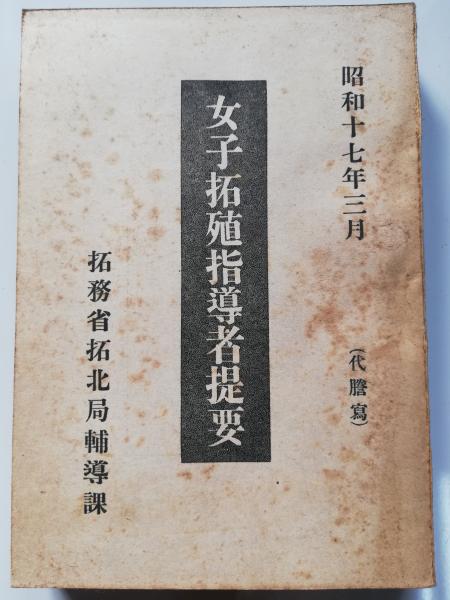 昭和十七年三月
(代謄寫)
女子拓殖指導者提要
拓務省拓北局輔導課